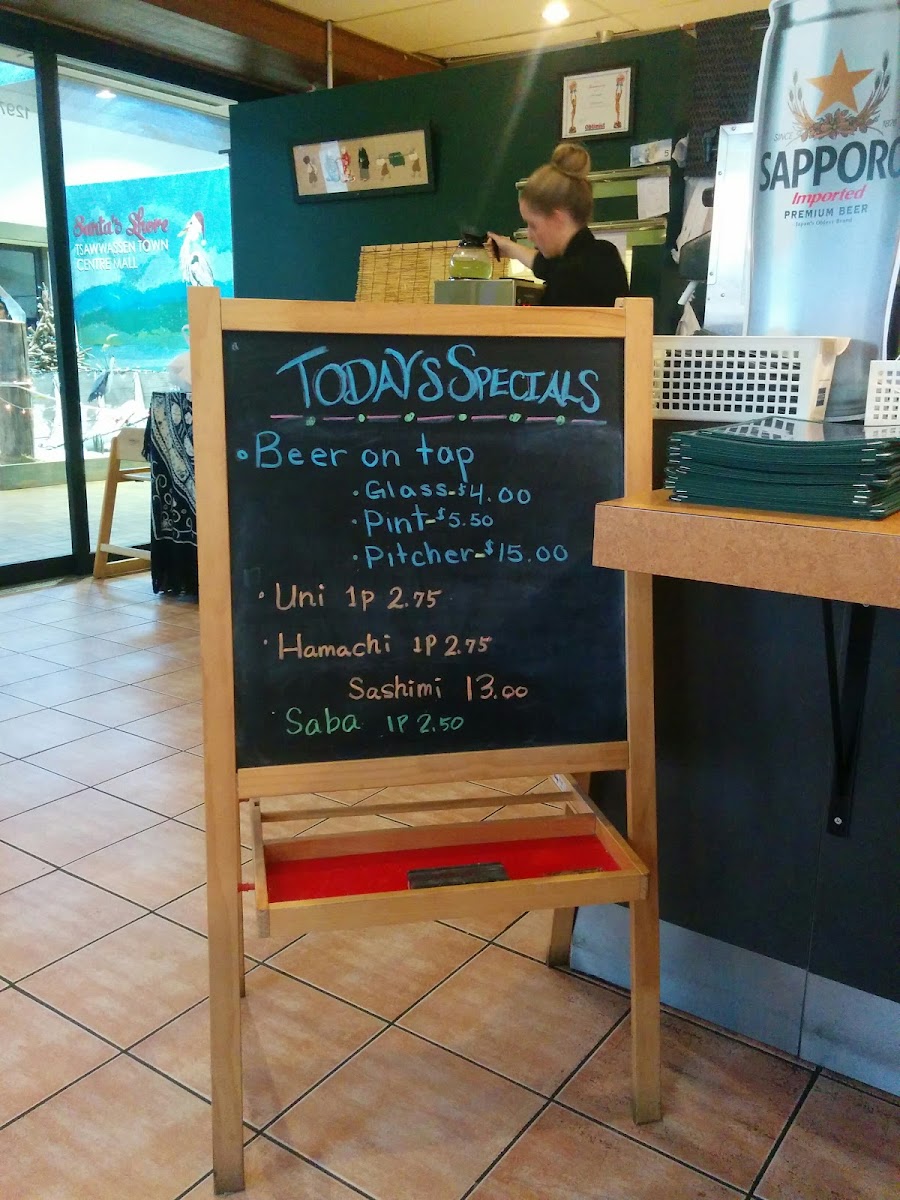 1297
Santa's Shore
TSAWWASSEN TOWN
CENTRE MALL
SINCE 1876
SAPPORO
Imported
PREMIUM BEER
Japan's Oldest Brand
TODAY'S SPECIALS
• Beer on tap
• Glass-$4.00
• Pint-$5.50
• Pitcher-$15.00
• Uni 1P 2.75
• Hamachi 1P 2.75
Sashimi 13.00
• Saba 1P 2.50